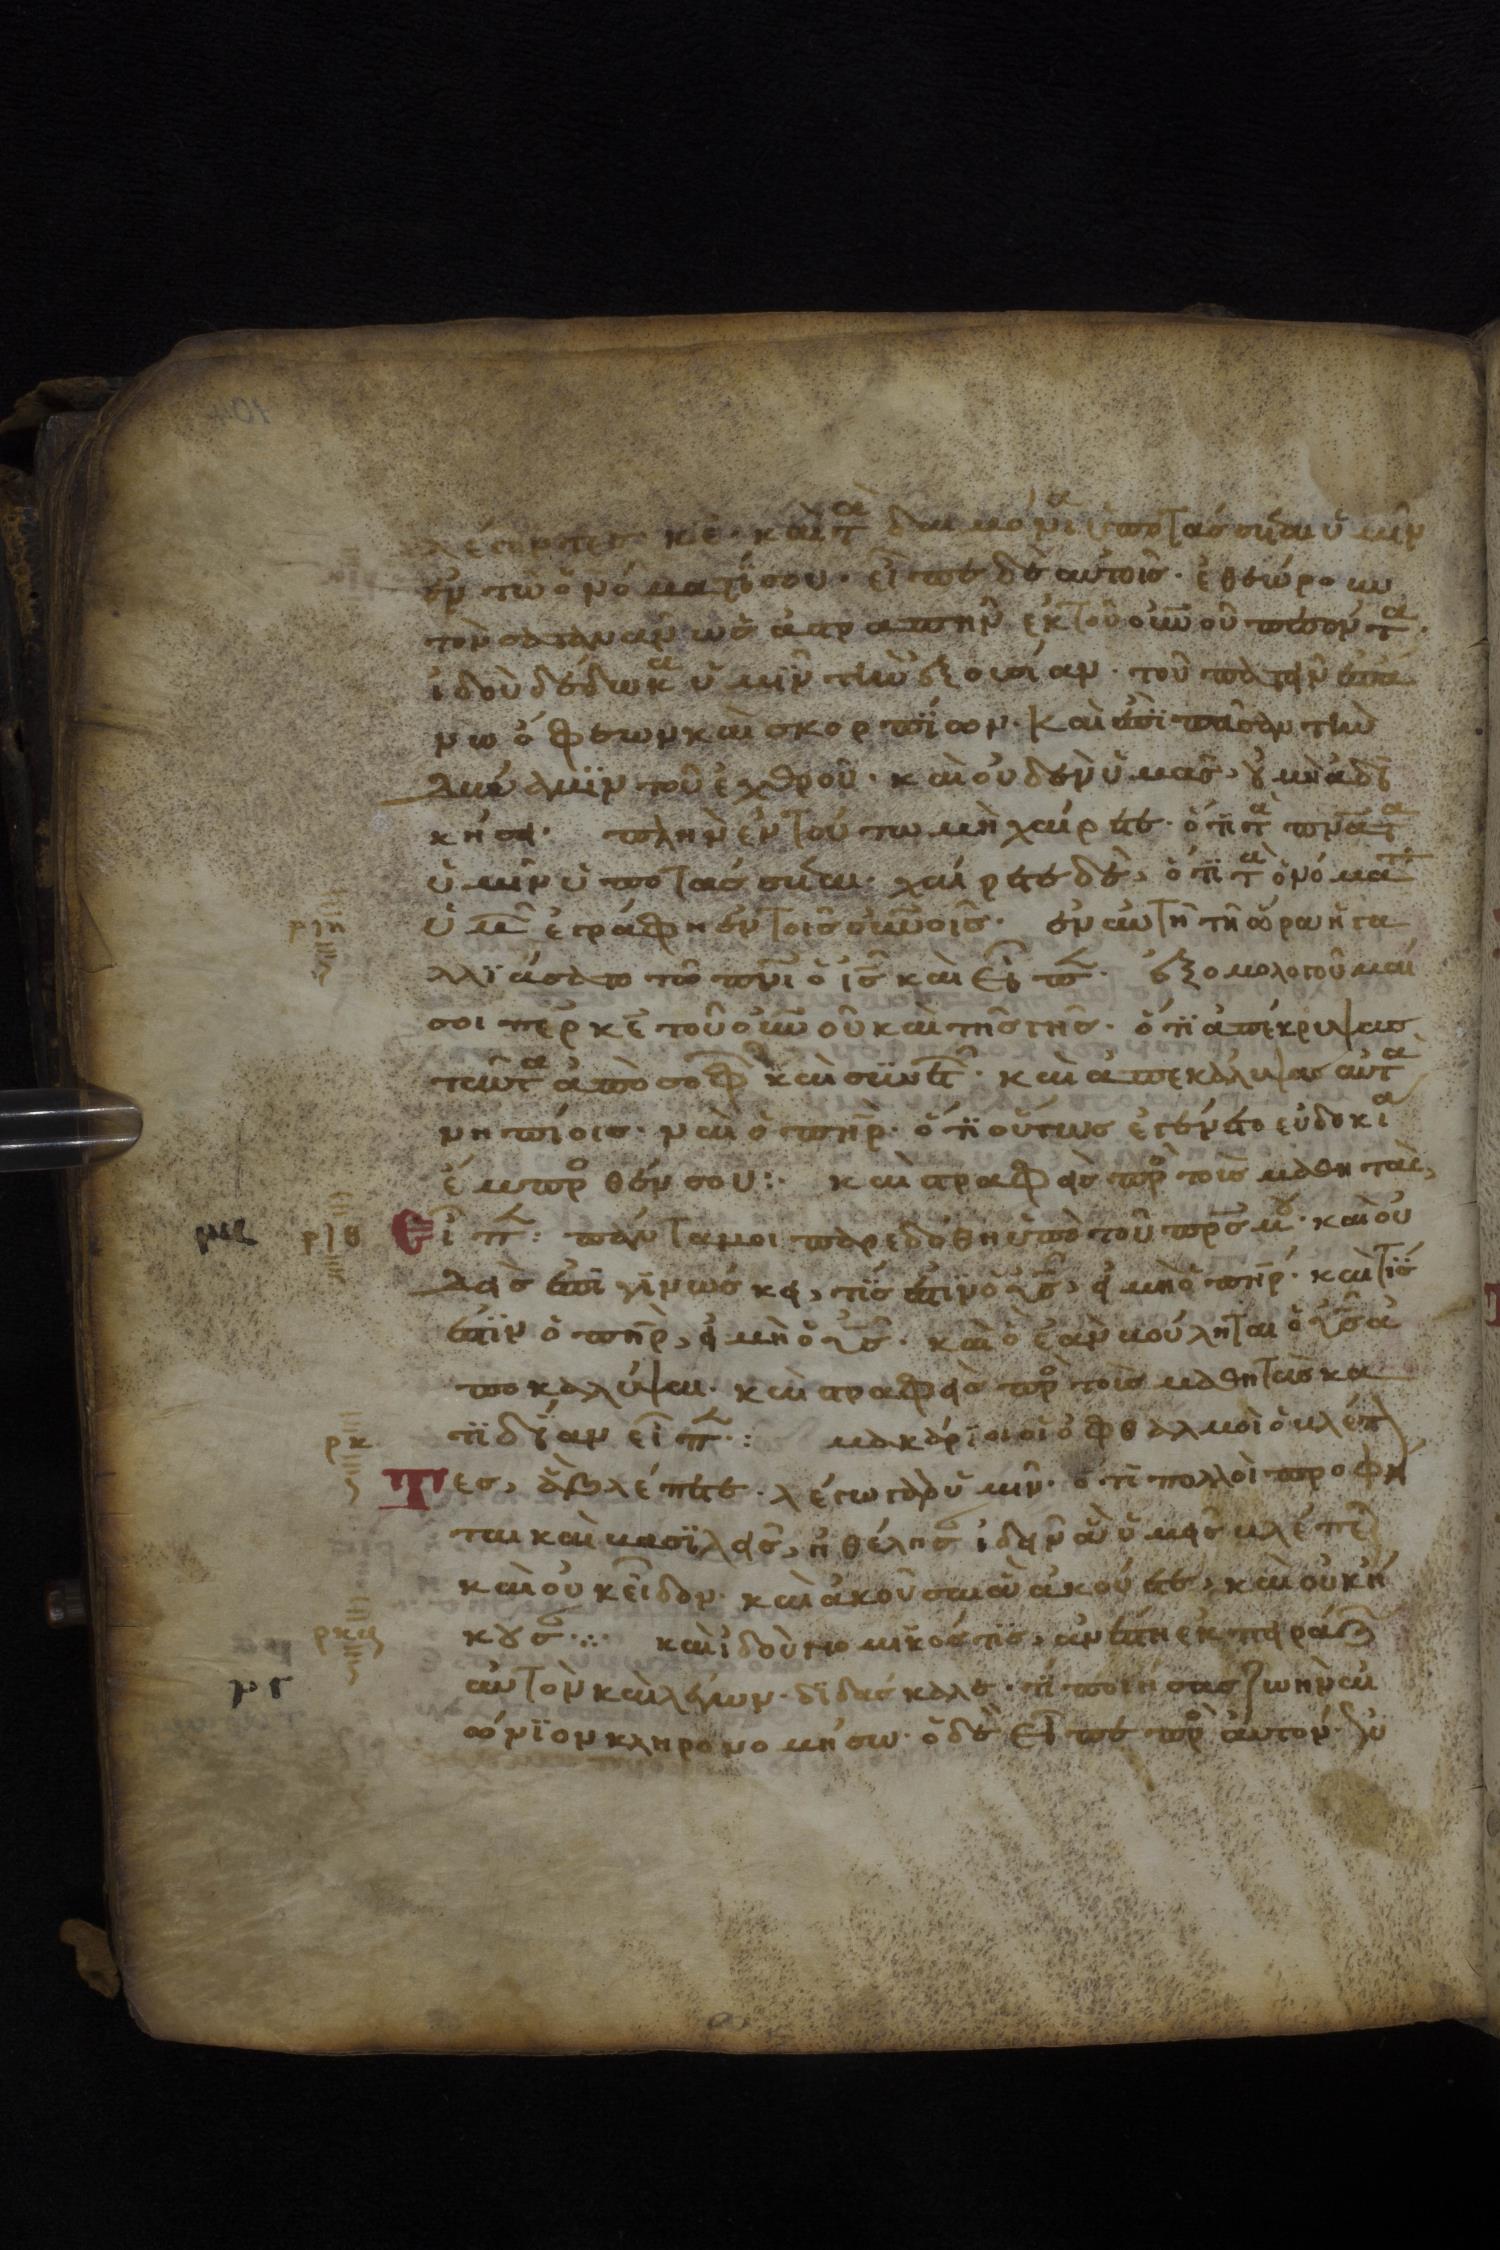 λέγοντες· κε· καὶ τὰ δαιμόνια ὑποτάσσεται ὑμῖν
ἐν τῶ ὀνόματί σου· εἶπε δὲ αὐτοῖς· ἐθεώρουν
τὸν σαταναν ὡς ἀστραπὴν ἐκ τοῦ οὐνοῦ πεσόντα·
ἰδοὺ δέδωκα ὑμῖν τὴν ἐξουσίαν· τοῦ πατεῖν ἐπά
νω ὄφεων καὶ σκορπΐων· καὶ ἐπὶ πᾶσαν τὴν
δύναμϊν τοῦ ἐχθροῦ· καὶ οὐδὲν ὑμᾶς, οὐ μὴ ἀδϊ
κήσει· πλὴν ἐν τούτω μὴ χαίρετε· ὅτι τὰ πνατα
ὑμῖν ὑποτάσσεται· χαίρετε δὲ, ὅτϊ τὰ ὀνόματα
ριη ὑμῶν ἐγράφη ἐν τοῖς οὐνοῖς· ἐν αὐτῆ τῆ ὥρα ἠγα
λλϊάσατο τῶ πνι ὁ ις καὶ εἶπεν· ἐξομολογοῦμαί
σοι περ κε τοῦ οὐνοῦ καὶ τῆς γῆς· ὅτϊ ἀπέκρυψας
ταῦτα ἀπὸ σοφῶν καὶ συνετῶν· καὶ ἀπεκάλυψας αὐτὰ
νηπίοις· ναὶ ὁ πηρ· ὅτϊ οὕτως ἐγένετο εὐδοκία
ἔμπροσθέν σου:· καὶ στραφεὶς πρὸς τοὺς μαθητὰς,
με ριθ Εἶπεν: πάντα μοι παρεδόθη ὑπὸ τοῦ πρς μου· καὶ οὐ
δεὶς ἐπιγϊνώσκει, τΐς ἐστϊν ὁ υς, εἰ μὴ ὁ πηρ· καὶ τΐς
ἐστϊν ὁ πηρ, εἰ μὴ ὁ υς· καὶ ὃ ἐὰν βούληται ὁ υς ἀ
ποκαλύψαι· καὶ στραφεὶς πρὸς τοὺς μαθητὰς κα
ρκ τϊδΐαν εἶπεν: μακάρϊοι οἱ ὀφθαλμοὶ οἱ βλέπον
Τες, ἃ βλέπετε· λέγω γὰρ ὑμῖν· ὅτι πολλοὶ προφῆ
ται καὶ βασϊλεῖς, ἠθέλησαν ἰδεῖν ἃ ὑμεῖς βλέπετε
καὶ οὐκ εἶδον· καὶ ἀκοῦσαι ἃ ἀκούετε, καὶ οὐκ ἤ
ρκα κουσαν·:· καὶ ἰδοὺ νομικός τϊς, ἀνέστη ἐκπειράζων
μς αὐτὸν καὶ λέγων· δϊδάσκαλε· τΐ ποιήσας ζωὴν αἰ
ώνϊον κληρονομήσω· ὁ δὲ εἶπε πρὸς αὐτόν· ἐν